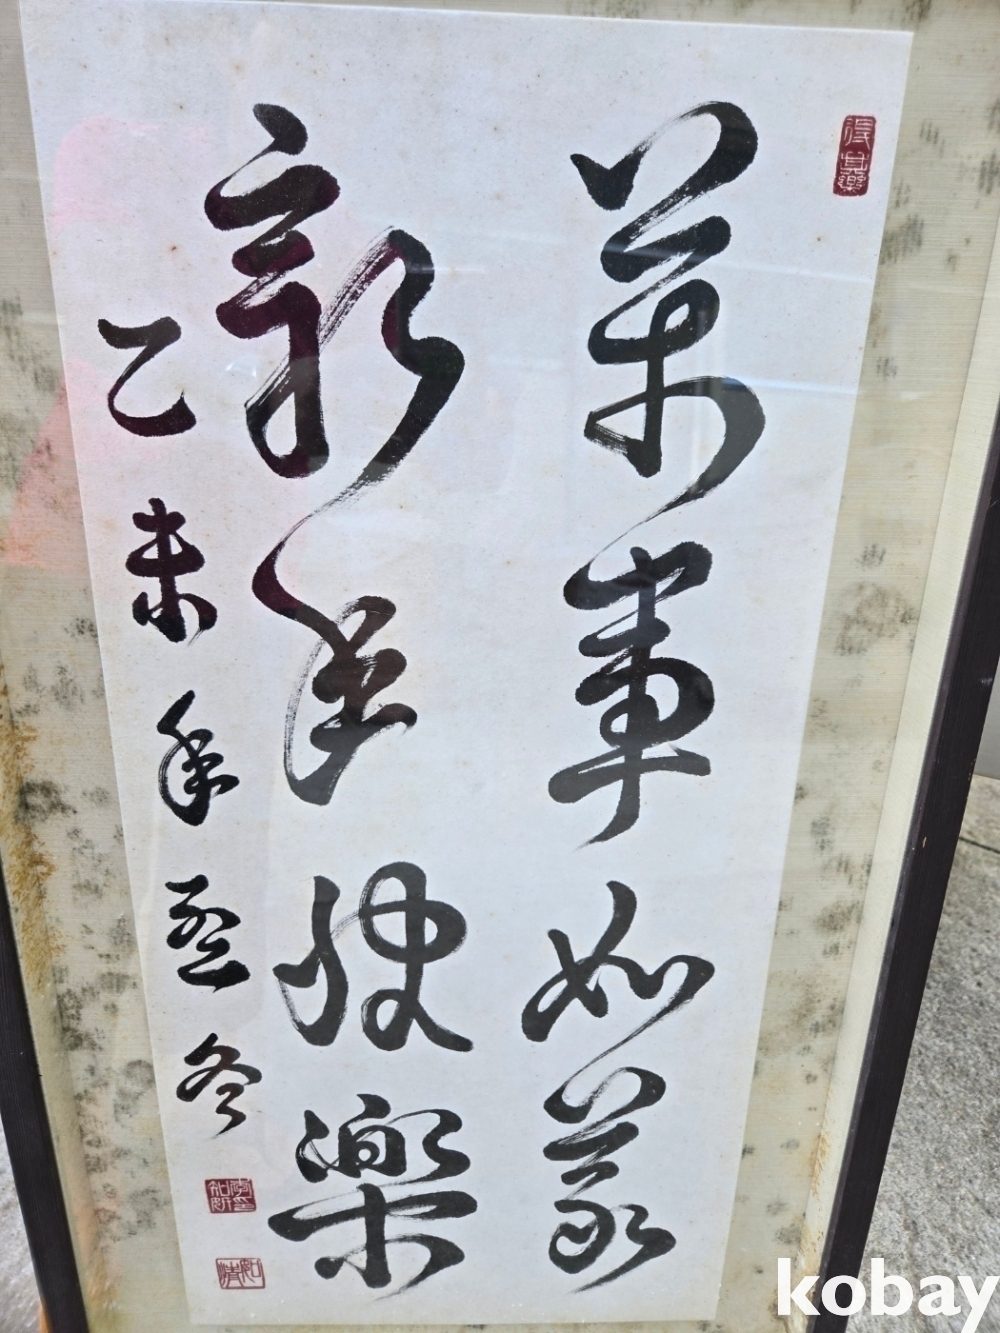 得其樂
萬事如意
新年快樂
乙未年孟冬
kobay